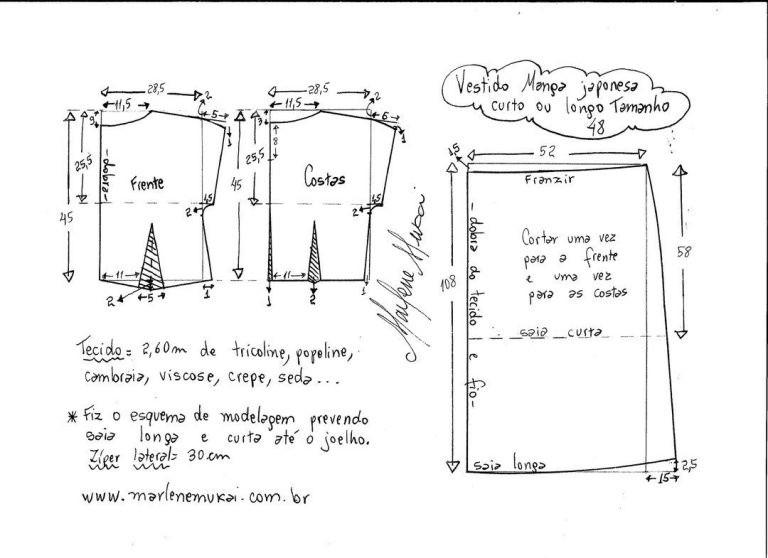 Vestido Manga japonesa
curto ou longo Tamanho
48
28,5
11,5
2
5
9
1
25,5
45
-dobra-
Frente
1,5
2
11
2
5
1
28,5
11,5
2
6
3
8
1
25,5
45
Costas
1,5
2
11
1
2
1
Marlene Mukai
1,5
52
Franzir
-dobra do tecido e fio-
Cortar uma vez
para a frente
e uma vez
para as costas
58
108
saia curta
saia longa
2,5
15
Tecido = 2,60m de tricoline, popeline,
cambraia, viscose, crepe, seda...
* Fiz o esquema de modelagem prevendo
saia longa e curta até o joelho.
Zíper lateral = 30.cm
www.marlenemukai.com.br